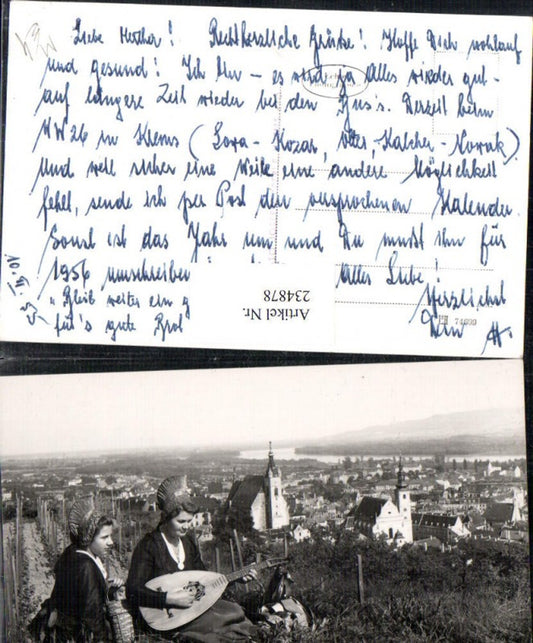 Liebe Mutter! Recht herzliche Grüße! Hoffe Dich wohlauf
und gesund! Ich bin – es wird ja alles wieder gut –
auf längere Zeit wieder bei den Russ. Derzeit beim
KW26 in Krems (Lora - Kozar, Vater, - Kalcher - Novak)
Und weil sicher eine Weile eine andere Möglichkeit
fehlt, sende ich per Post den versprochenen Kalender.
Sonst ist das Jahr um und Du mußt ihn für
1956 umschreiben
Alles Liebe!
"Bleib weiter ein g
Herzlichst
für's gute
Dein
Artikel Nr.
234878